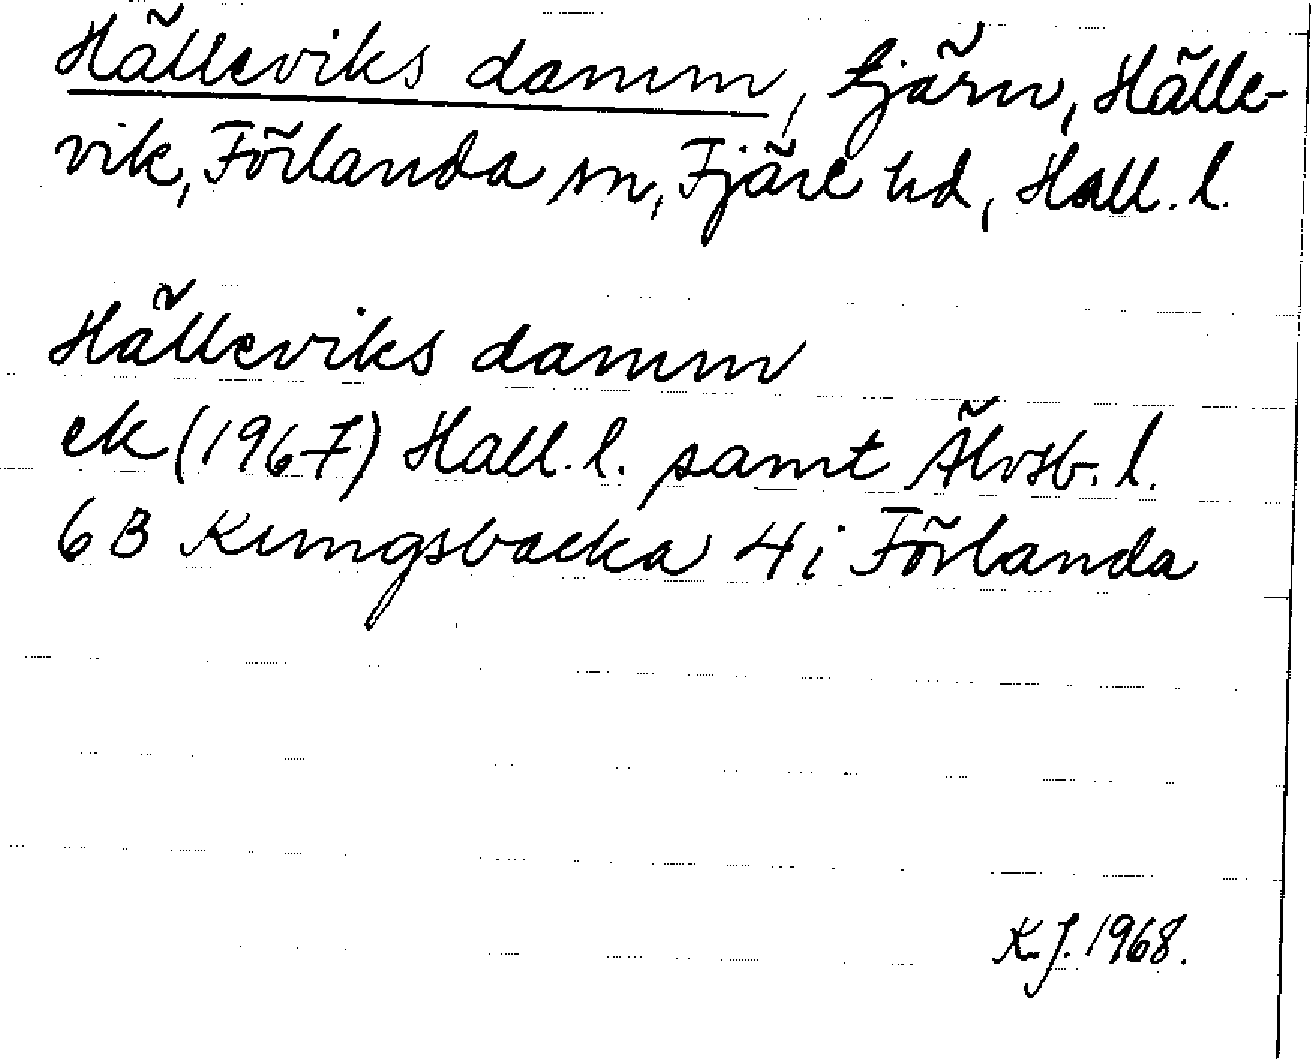 Hälleviks damm, tjärn, Hälle-
vik, Förlanda sn, Fjäre hd, Hall. l.
Hälleviks damm
ek (1967) Hall. l. samt Älvsb. l.
6B Kungsbacka 4i Förlanda
K.J. 1968.